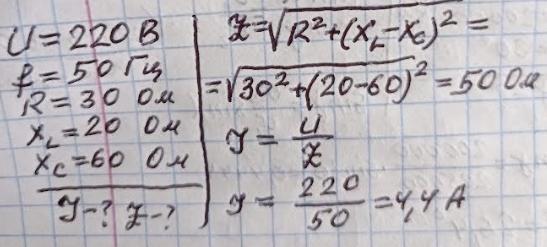 U = 220 В
f = 50 Гц
R = 30 Ом
X_L = 20 Ом
X_C = 60 Ом
I - ? Z - ?
Z = √(R² + (X_L - X_C)²) =
= √(30² + (20 - 60)²) = 50 Ом
I = U / Z
I = 220 / 50 = 4,4 А